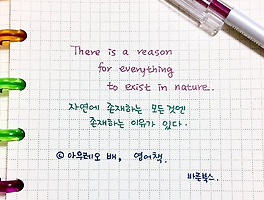 There is a reason
for everything
to exist in nature.
자연에 존재하는 모든것엔
존재하는 이유가 있다.
ⓒ 아우레오 배, 영어책.
바른북스.